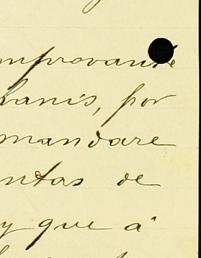 mprovante
hanis, por
mandare
ntas de
y que á